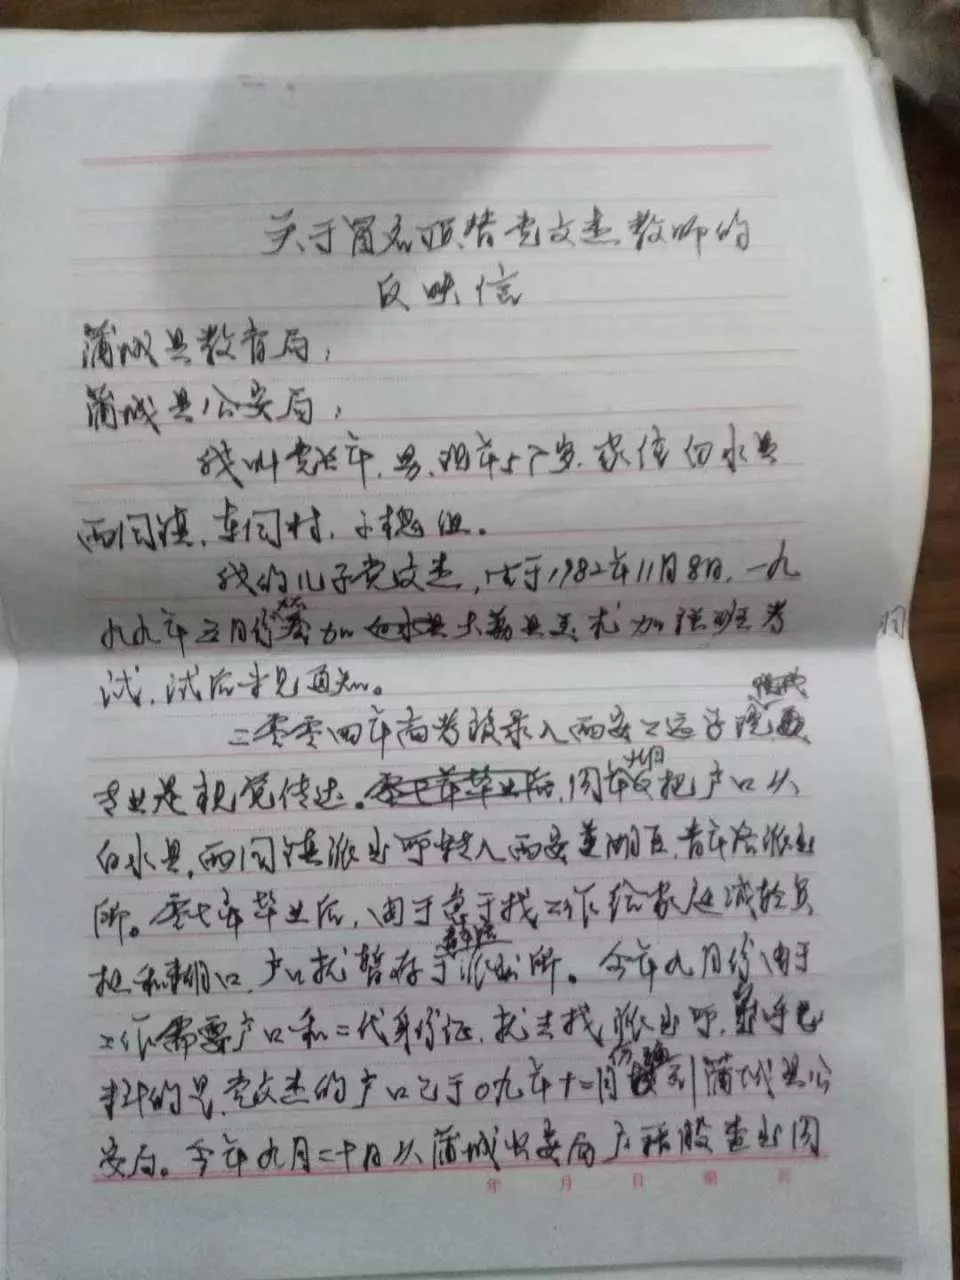 关于冒名顶替党文杰教师的
反映信
蒲城县教育局:
蒲城县公安局:
我叫党 年,男,现年57岁,家住白水县
西固镇,东固村,子槐组。
我的儿子党文杰,生于1982年11月8日,一九
九九年三月份参加白水县大荔县美术加强班考
试,试后未见通知。
二零零四年高考被录入西安工运学院
专业是视觉传达。零七年毕业后,同年 月把户口从
白水县,西固镇派出所转入西安莲湖区,青年路派出
所。零七年毕业后,由于急于找工作给家庭减轻负
担和糊口,户口就暂存于青年路派出所。今年九月份由于
工作需要户口和二代身份证,就去找派出所,
料的是,党文杰的户口已于09九年十二月份 到蒲城县公
安局。今年九月二十日从蒲城公安局户籍股查出同
年 月 日 第 页